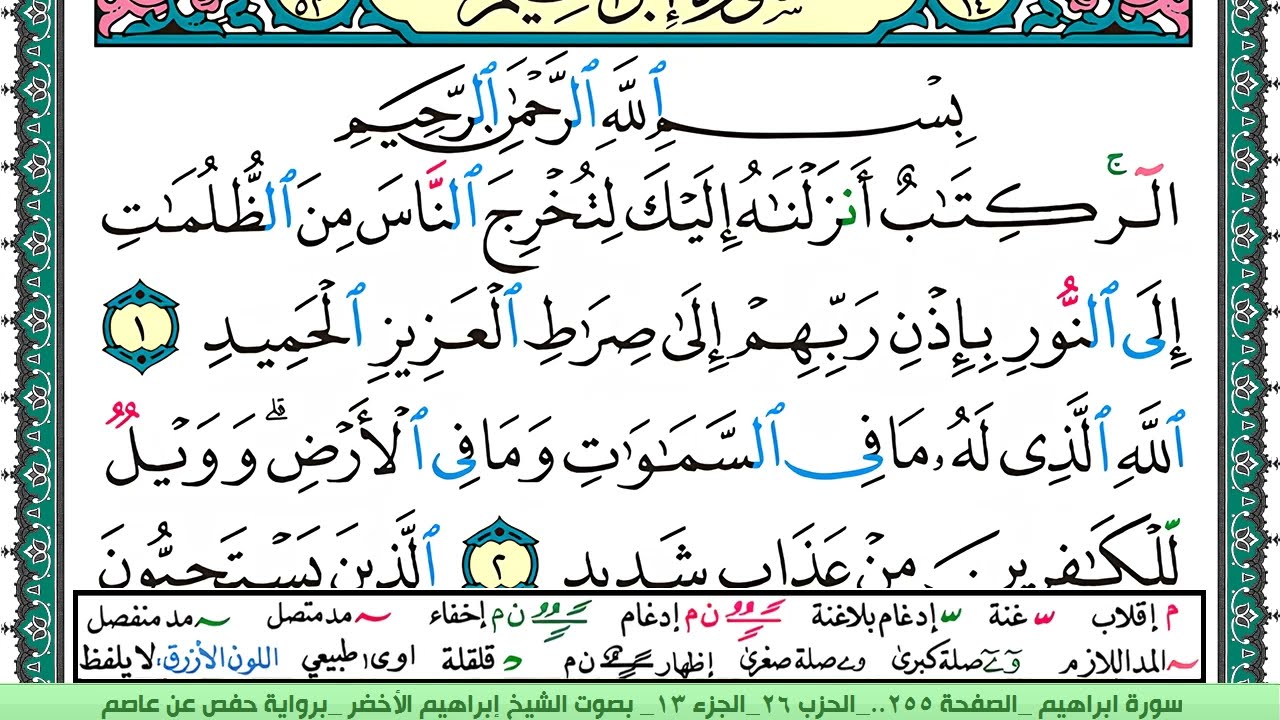 سورة إبراهيم
بِسْمِ ٱللَّهِ ٱلرَّحْمَٰنِ ٱلرَّحِيمِ
الٓرۚ كِتَٰبٌ أَنزَلْنَٰهُ إِلَيْكَ لِتُخْرِجَ ٱلنَّاسَ مِنَ ٱلظُّلُمَٰتِ
إِلَى ٱلنُّورِ بِإِذْنِ رَبِّهِمْ إِلَىٰ صِرَٰطِ ٱلْعَزِيزِ ٱلْحَمِيدِ ١
ٱللَّهِ ٱلَّذِى لَهُۥ مَا فِى ٱلسَّمَٰوَٰتِ وَمَا فِى ٱلْأَرْضِۗ وَوَيْلٌ
لِّلْكَٰفِرِينَ مِنْ عَذَابٍ شَدِيدٍ ٢ ٱلَّذِينَ يَسْتَحِبُّونَ
م إقلاب غنة إدغام بلاغنة ن م إدغام ن م إخفاء مد متصل مد منفصل
المد اللازم صلة كبرى صلة صغرى إظهار ن م قلقلة اوى طبيعي اللون الأزرق: لا يلفظ
سورة ابراهيم _الصفحة ٢٥٥.._الحزب ٢٦_الجزء ١٣_ بصوت الشيخ إبراهيم الأخضر _برواية حفص عن عاصم